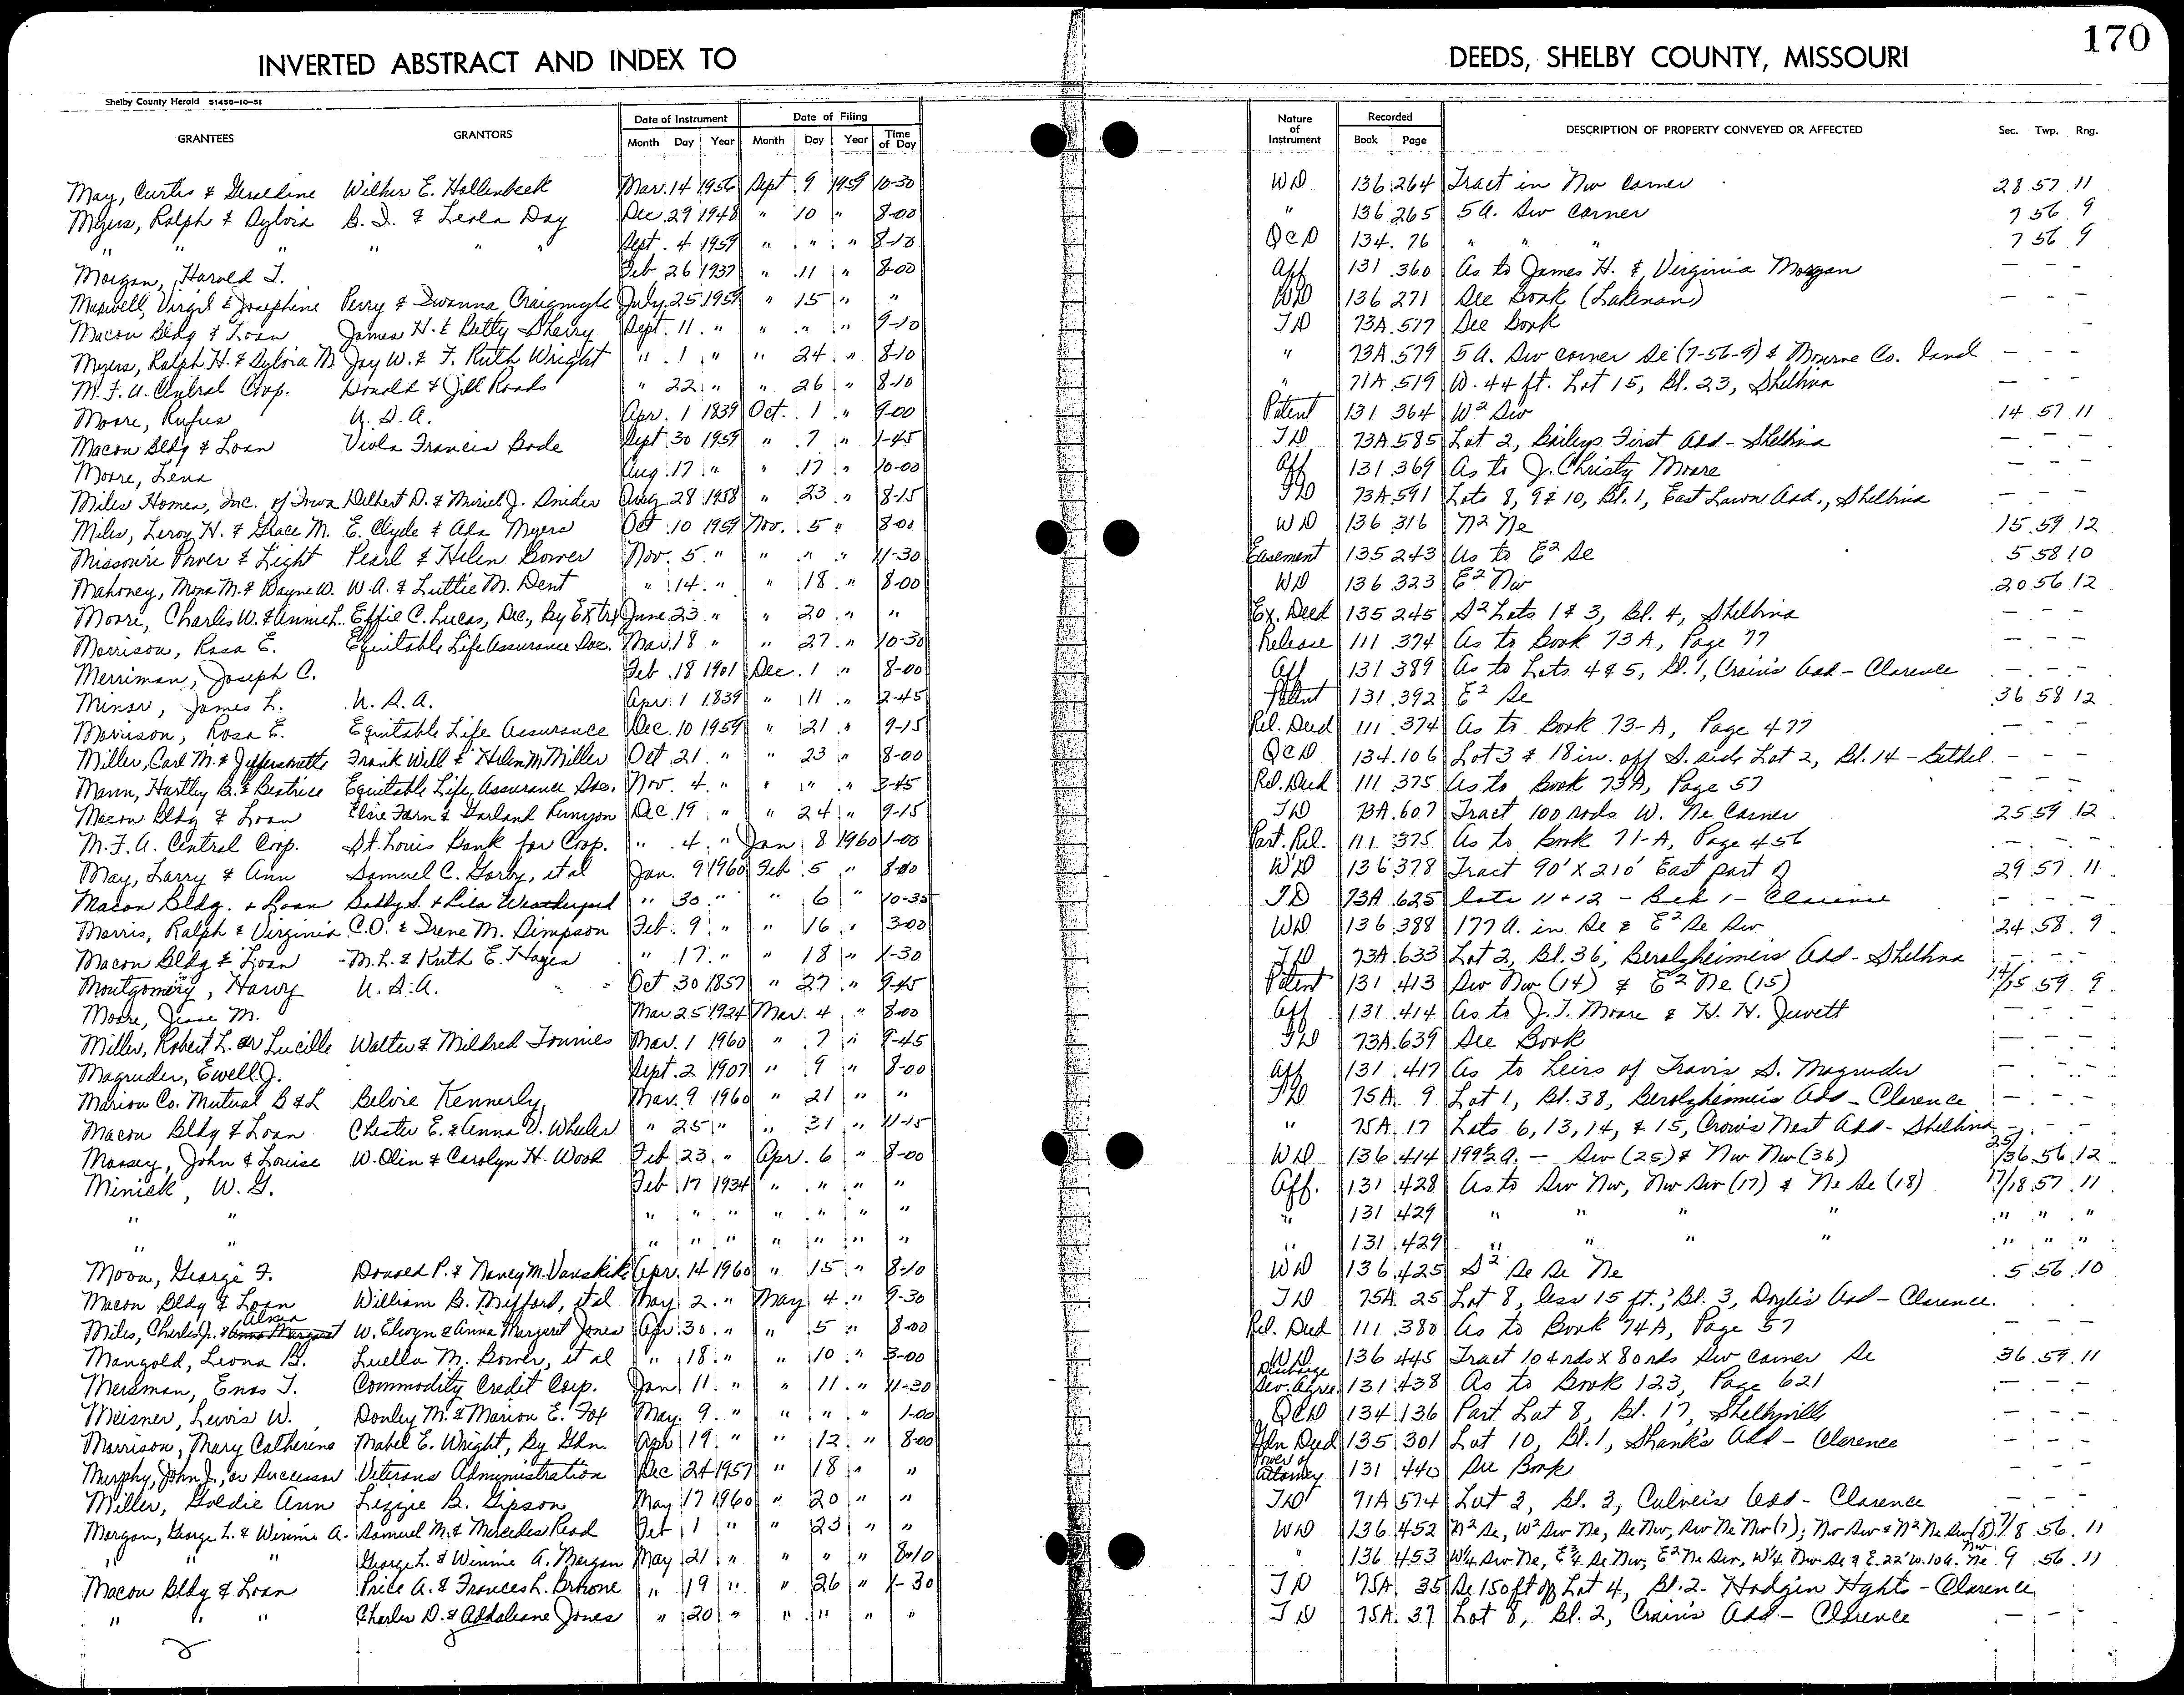 170
INVERTED ABSTRACT AND INDEX TO DEEDS, SHELBY COUNTY, MISSOURI
Shelby County Herald 51458-10-51
GRANTEES GRANTORS Date of Instrument Date of Filing Nature of Instrument Recorded DESCRIPTION OF PROPERTY CONVEYED OR AFFECTED Sec. Twp. Rng.
Month Day Year Month Day Year Time of Day Book Page
May, Curtis & Geraldine Wilker E. Hollenbeck Mar. 14 1956 Sept 9 1959 10-30 WD 136 264 Tract in Nw Corner 28 57 11
Myers, Ralph & Sylvia B. I. & Leola Day Dec 29 1948 " 10 " 8-00 " 136 265 5 A. Sw Corner 7 56 9
" " " " " " Sept. 4 1959 " " " 8-10 QCD 134 76 " " " 7 56 9
Morgan, Harold T. Feb 26 1937 " 11 " 8-00 Aff 131 360 As to James H. & Virginia Morgan — — —
Maxwell, Virgil & Josephine Perry & Iwanna Craigmyle July 25 1959 " 15 " " WD 136 271 See Book (Lakenan) — — —
Macon Bldg & Loan James H. & Betty Sherry Sept. 11 " " " " 9-10 TD 73A 577 See Book —
Myers, Ralph H. & Sylvia M. Jay W. & F. Ruth Wright " 1 " " 24 " 8-10 " 73A 579 5 A. Sw corner Se (7-56-9) & Monroe Co. land — - -
M. F. A. Central Coop. Donald & Jill Roads " 22 " " 26 " 8-10 " 71A 519 W. 44 ft. Lot 15, Bl. 23, Shelbina — — —
Moore, Rufus U. S. A. Apr. 1 1839 Oct. 1 " 9-00 Patent 131 364 W2 Sw 14 57 11
Macon Bldg & Loan Viola Francis Bode Sept 30 1959 " 7 " 1-45 TD 73A 585 Lot 2, Baileys First Add - Shelbina — — —
Moore, Lena Aug. 17 " " 17 " 10-00 Aff 131 369 As to J. Christy Moore — — —
Miles Homes, Inc. of Iowa Delbert D. & Muriel J. Snider Aug 28 1958 " 23 " 8-15 TD 73A 591 Lots 8, 9 & 10, Bl. 1, East Lawn Add., Shelbina — — —
Miles, Leroy H. & Grace M. E. Clyde & Ada Myers Oct 10 1959 Nov. 5 " 8-00 WD 136 316 N2 Ne 15 59 12
Missouri Power & Light Pearl & Helen Bower Nov. 5 " " " " 11-30 Easement 135 243 As to E2 Se 5 58 10
Mahoney, Mona M. & Wayne W. W. A. & Luttie M. Dent " 14 " " 18 " 8-00 WD 136 323 E2 Nw 20 56 12
Moore, Charles W. & Annie L. Effie C. Lucas, Dec., By Extrx June 23 " " 20 " " Ex. Deed 135 245 S2 Lots 1 & 3, Bl. 4, Shelbina — — —
Morrison, Rosa E. Equitable Life Assurance Soc. Mar. 18 " " 27 " 10-30 Release 111 374 As to Book 73 A, Page 77 — — —
Merriman, Joseph C. Feb 18 1901 Dec. 1 " 8-00 Aff 131 389 As to Lots 4 & 5, Bl. 1, Crain's Add - Clarence — — —
Minor, James L. U. S. A. Apr. 1 1839 " 11 " 2-45 Patent 131 392 E2 Se 36 58 12
Morrison, Rosa E. Equitable Life Assurance Dec. 10 1959 " 21 " 9-15 Rel. Deed 111 374 As to Book 73-A, Page 477 — — —
Miller, Carl M. & Jeffersonette Frank Will & Helen M. Miller Oct 21 " " 23 " 8-00 QCD 134 106 Lot 3 & 18 in. off S. side Lot 2, Bl. 14 - Bethel — — —
Mann, Hartley B. & Beatrice Equitable Life Assurance Soc. Nov. 4 " " " " 3-45 Rel. Deed 111 375 As to Book 73A, Page 57 — — —
Macon Bldg & Loan Elsie Fern & Garland Runyon Dec. 19 " " 24 " 9-15 TD 73A 607 Tract 100 rods W. Ne Corner 25 59 12
M. F. A. Central Coop. St. Louis Bank for Coop. " 4 " Jan. 8 1960 1-00 Part. Rel. 111 375 As to Book 71-A, Page 456 — — —
May, Larry & Ann Samuel C. Gorby, et al Jan. 9 1960 Feb 5 " 8-00 WD 136 378 Tract 90' X 210' East part of 29 57 11
Macon Bldg. & Loan Bobby S. & Lila Weatherford " 30 " " 6 " 10-35 TD 73A 625 lots 11 + 12 - Bek 1 - Clarence — — —
Morris, Ralph & Virginia C. O. & Irene M. Simpson Feb. 9 " " 16 " 3-00 WD 136 388 177 A. in Se & E2 Se Sw 24 58 9
Macon Bldg & Loan M. L. & Ruth E. Hayes " 17 " " 18 " 1-30 TD 73A 633 Lot 2, Bl. 36, Berolzheimer's Add - Shelbina — — —
Montgomery, Harvy U. S. A. Oct 30 1857 " 27 " 9-45 Patent 131 413 Sw Nw (14) & E2 Ne (15) 14/15 59 9
Moore, Jesse M. Mar 25 1924 Mar. 4 " 8-00 Aff 131 414 As to J. T. Moore & H. H. Jewett — — —
Miller, Robert L. or Lucille Walter & Mildred Tonnies Mar. 1 1960 " 7 " 9-45 TD 73A 639 See Book — — —
Magruder, Ewell J. Sept. 2 1907 " 9 " 8-00 Aff 131 417 As to Heirs of Travis S. Magruder — — —
Marion Co. Mutual B & L Belvie Kennerly Mar. 9 1960 " 21 " " TD 75A 9 Lot 1, Bl. 38, Berolzheimer's Add - Clarence — — —
Macon Bldg & Loan Chester E. & Anna V. Wheeler " 25 " " 31 " 11-15 " 75A 17 Lots 6, 13, 14, & 15, Crow's Nest Add - Shelbina — — —
Massey, John & Louise W. Olin & Carolyn H. Wood Feb 23 " Apr. 6 " 8-00 WD 136 414 199½ A. — Sw (25) & Nw Nw (36) 25/36 56 12
Minick, W. G. Feb 17 1934 " " " " Aff. 131 428 As to Sw Nw, Nw Sw (17) & Ne Se (18) 17/18 57 11
" " " " " " " " " " 131 429 " " " " " " "
" " " " " " " " " " 131 429 " " " " " " "
Moon, George F. Donald P. & Nancy M. Vanskike Apr. 14 1960 " 15 " 8-10 WD 136 425 S2 Se Se Ne 5 56 10
Macon Bldg & Loan William B. Mefford, et al May 2 " May 4 " 9-30 TD 75A 25 Lot 8, less 15 ft.; Bl. 3, Doyle's Add - Clarence
Miles, Charles J. & Anna Margaret Alma W. Elwyn & Anna Margaret Jones Apr. 30 " " 5 " 8-00 Rel. Deed 111 380 As to Book 74A, Page 57 — — —
Mangold, Leona B. Luella M. Bower, et al " 18 " " 10 " 3-00 WD 136 445 Tract 10 4 rds X 80 rds Sw Corner Se 36 59 11
Mersman, Enos T. Commodity Credit Corp. Jan 11 " " 11 " 11-30 Discharge Sev. Agree. 131 438 As to Book 123, Page 621 — — —
Meisner, Lewis W. Donley M. & Marion E. Fox May 9 " " " " 1-00 QCD 134 136 Part Lot 8, Bl. 17, Shelbyville — — —
Morrison, Mary Catherine Mabel E. Wright, By Gdn. Apr 19 " " 12 " 8-00 Gdn Deed 135 301 Lot 10, Bl. 1, Shank's Add - Clarence — — —
Murphy, John J., or Successor Veterans Administration Dec 24 1957 " 18 " " Power of Attorney 131 440 See Book — — —
Miller, Goldie Ann Lizzie B. Gipson May 17 1960 " 20 " " TD 71A 574 Lot 2, Bl. 3, Culver's Add - Clarence — — —
Morgan, George L. & Winnie A. Samuel M. & Mercedes Read Feb 1 " " 23 " " WD 136 452 N2 Se, W2 Sw Ne, Se Nw, Sw Ne Nw (7); Nw Sw & N2 Ne Sw (8) 7/8 56 11
" " " George L. & Winnie A. Morgan May 21 " " " " 8-10 " 136 453 W¼ Sw Ne, E¾ Se Nw, E2 Ne Sw, W¼ Nw Se & E. 22' W. 10 A. Nw Ne 9 56 11
Macon Bldg & Loan Price A. & Frances L. Browne " 19 " " 26 " 1-30 TD 75A 35 Se 150 ft of Lot 4, Bl. 2 - Hodgin Hghts - Clarence
" " " Charles D. & Addaleane Jones " 20 " " " " " TD 75A 37 Lot 8, Bl. 2, Crain's Add - Clarence — — —